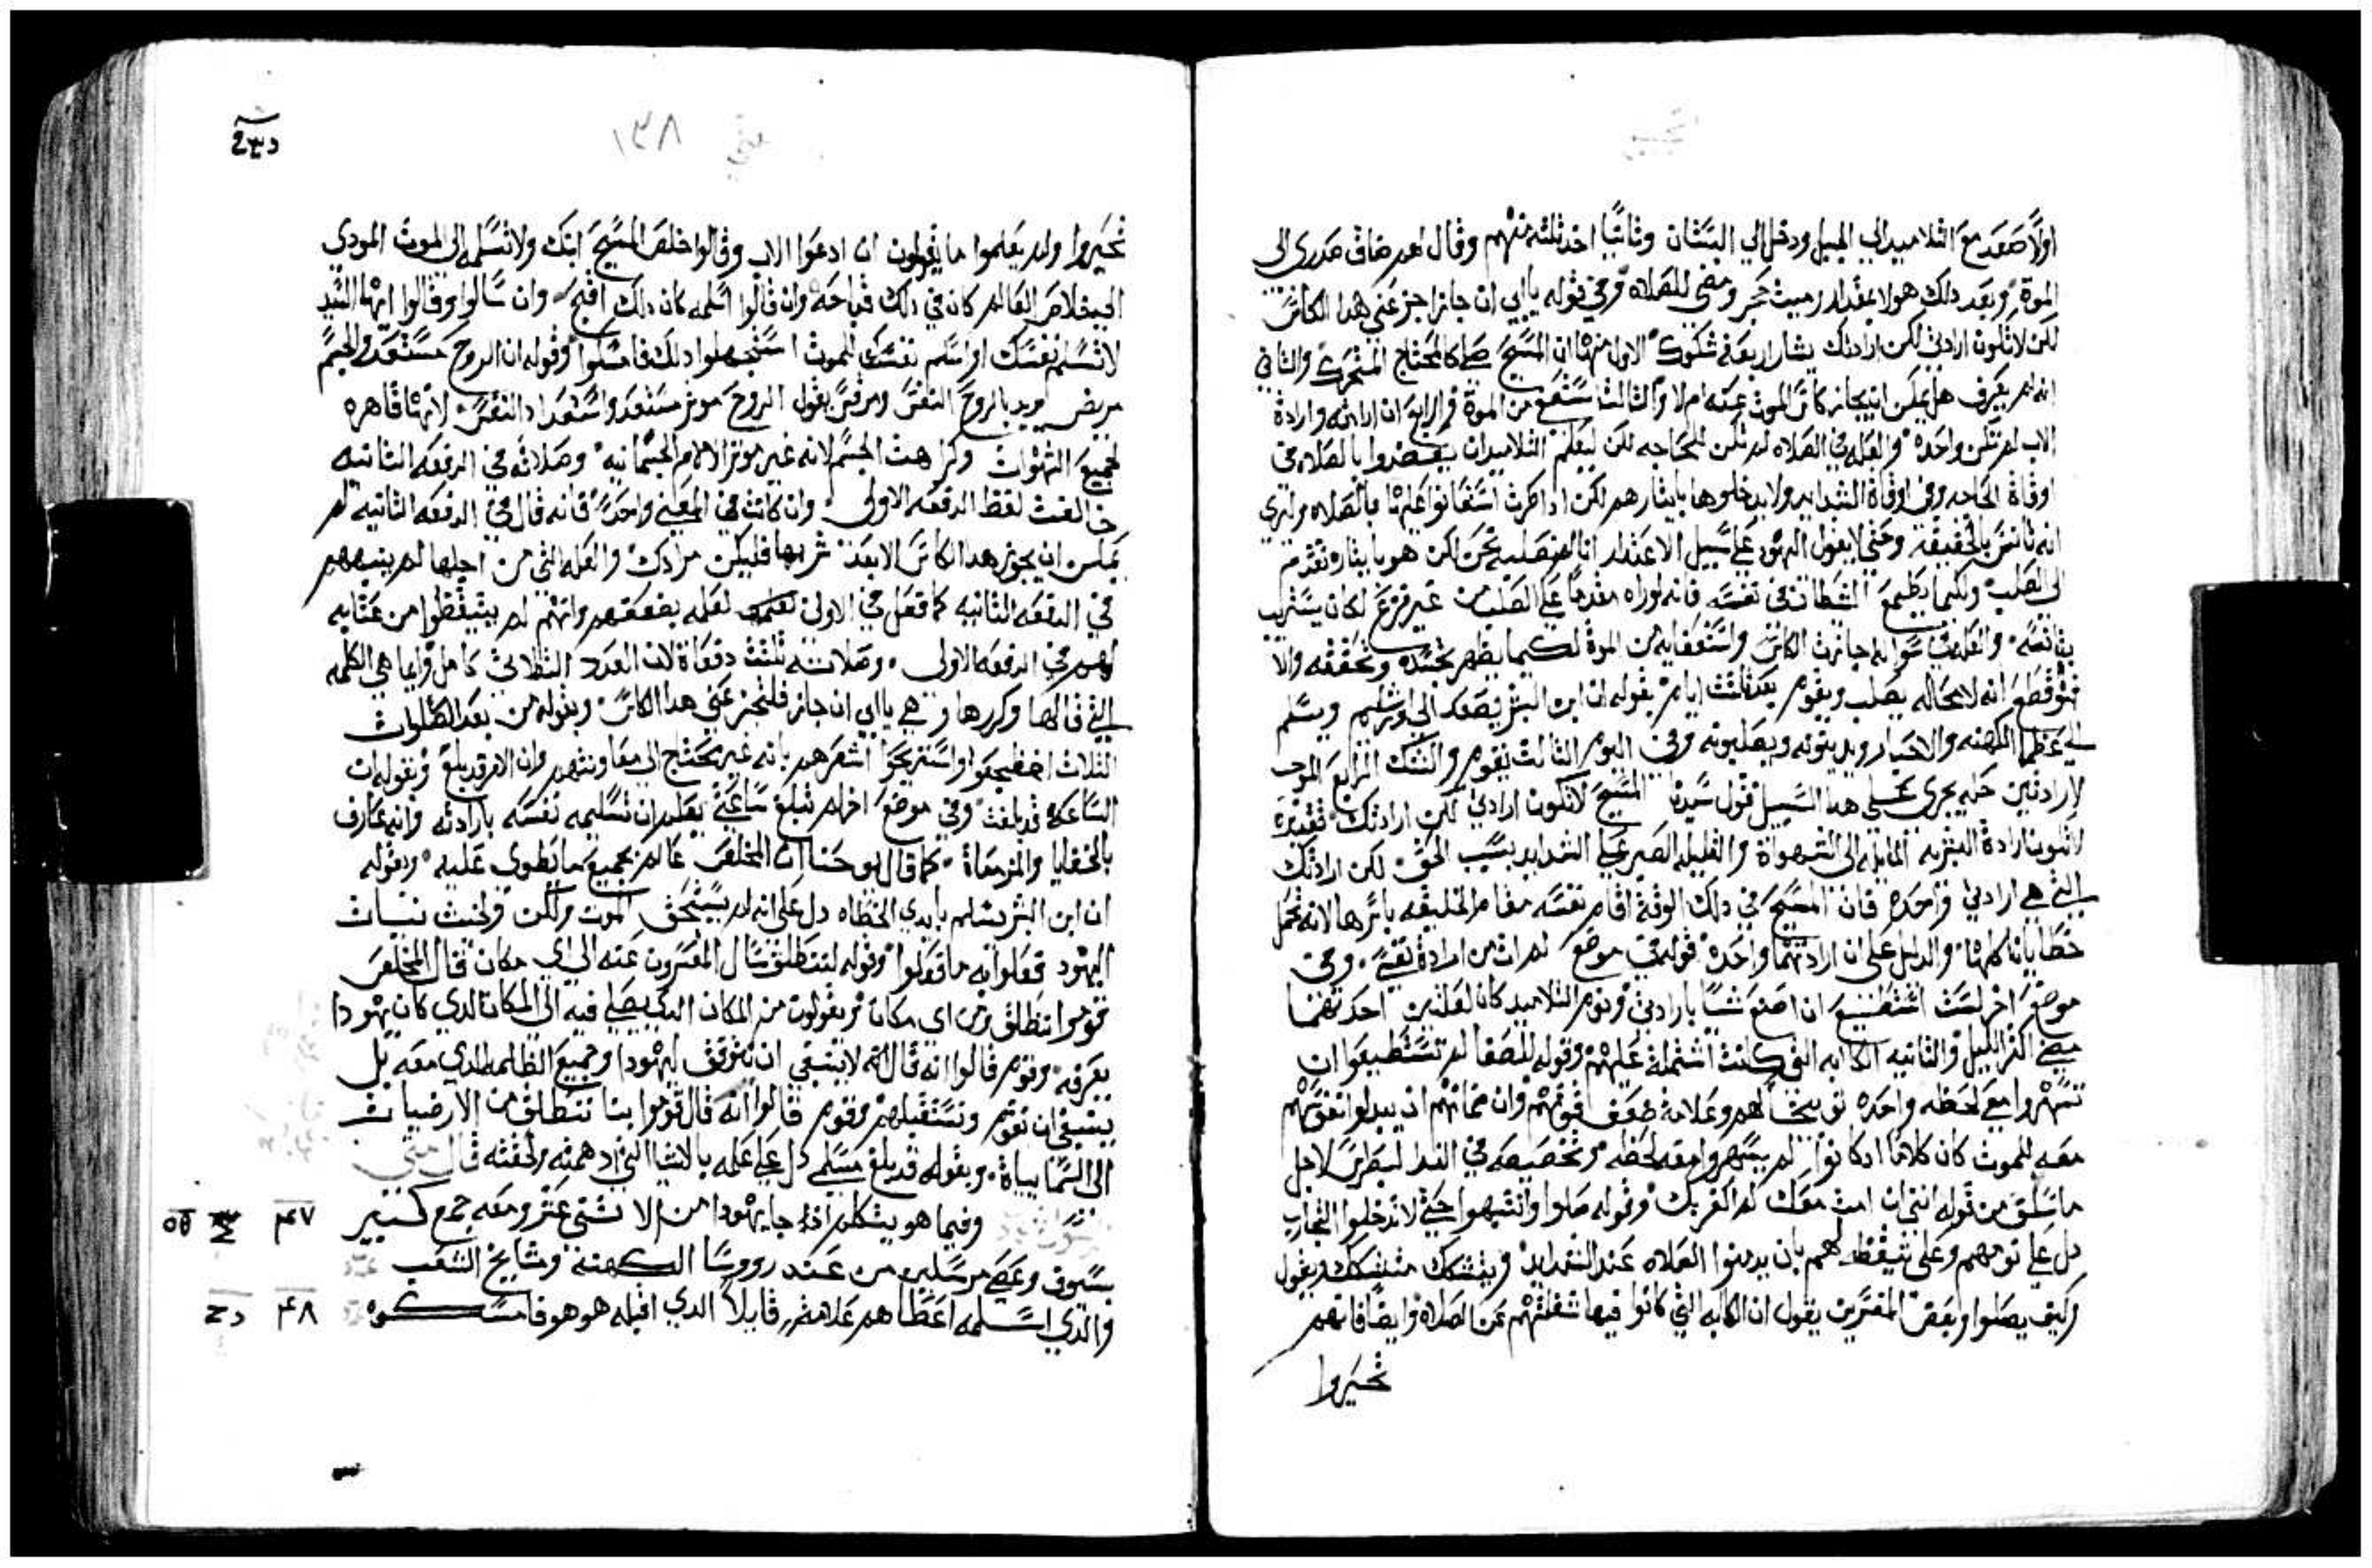 اولاً صعد مع التلاميد الي الجبل ودخل الي البستان وثانيًا اخد ثلثه منهم وقال لهم ضاقت صدري الى
الموة وبعد دلك هو لا بمقدار رميت حجر ومضي للصلاه وفي قوله يا ابي ان جاز اجز عني هدا الكاس
لكن لا تكون ارادتي لكن ارادتك يشار اربعة شكوك الاول منها ان المسيح صلي كالمحتاج المتحرك والثاني
انه لم يعرف هل يمكن ان يجاز كاس الموت عنه ام لا والثالث استعفي من الموة والرابع ان ارادته وارادة
الاب لم تكن واحدة والعله في الصلاه لم تكن لحاجه لكن ليعلم التلاميد ان يعتضدوا بالصلاه في
اوقاة الحاجه وفي اوقاة الشدايد ولا يدخلوها بايثارهم لكن ادا كرت استعانوا عليها بالصلاه وليري
انه تانس بالحقيقة وحتي لا يقول اليهود علي سبيل الاعتدار انا لم نصلبه نحن لكن هو بايثاره تقدم
الي الصلب ولكيما يطمع الشيطان في نفسه فانه لو راه مقدمًا علي الصلب من غير فزع لكان يستريب
بتانسه والعله في سواله جايزت الكاس واستعفايه من الموة لكيما يظهر تجسده وتحققه والا
فهو قطع انه لا محاله يصلب ويقوم بعد ثلثت ايام بقوله ان ابن البشر يصعد الي اورشليم ويسلم
الي عظما الكهنه والاحبار ويدينونه ويصلبونه وفي اليوم الثالث يقوم والشك الرابع الموجب
لارادتين حله يجري علي هدا السبيل قول سيدنا المسيح لا تكون ارادتي لكن ارادتك تقديره
لا تكون ارادة البشريه المايله الى الشهواة والقليله الصبر علي الشدايد بسبب الحق لكن ارادتك
التي هي ارادتي واحده فان المسيح في دلك الوقت اقام نفسه مقام الخليقه باسرها لانه تحمل
خطايانا كلها والدليل علي ان ارادتهما واحدة قوله في موضع لم ات من ارادة نفسي وفي
موضع اخر لست استطيع ان اصنع شيًا بارادتي ونوم التلاميد كان لعلتين احدتهما
مضي اكثر الليل والثانيه الكابه التي كانت اشتملة عليهم وقوله للصفا لم تستطيعوا ان
تسهروا معي لحظه واحده توبيخًا لهم وعلامة ضعف قوتهم وان ضمانهم ان يبدلوا نفوسهم
معه للموت كان كلامًا ادا كانوا لم يسهروا معه لحظه وتخصيصه في الندا لبطرس لاجل
ما سبق من قوله انني ان امت معك لم اكفر بك وقوله صلوا وانتبهوا حتي لا تدخلوا التجارب
دل علي نومهم وعلى تيقظه لهم بان يدمنوا الصلاه عند الشدايد ويتشكك متشكك ويقول
وكيف يصلوا وبعض المفسرين يقول ان الكابه التي كانوا فيها شغلتهم عن الصلاة وايضًا فانهم
تحيروا
١٣٨ متي
تحيروا ولم يعلموا ما يقولون ان ادعوا الاب وقالوا خلص المسيح ابنك ولا تسلمه الى الموت المودي
الي خلاص العالم كان في دلك قباحه وان قالوا اسلمه كان دلك اقبح وان سالوا وقالوا ايها السيد
لا تسلم نفسك او اسلم نفسك للموت استجهلوا دلك فامسكوا وقوله ان الروح مستعد والجسم
مريض يريد بالروح النفس ومرقس يقول الروح موثر مستعد واستعداد النفس لانها قاهره
لجميع الشهوات وكراهت الجسم لانه غير موثر الالام الجسمانيه وصلاته في الدفعه الثانيه
خالفت لفظ الدفعه الاولى وان كانت في المعني واحدة فانه قال في الدفعه الثانيه لم
يمكن ان يجوز هدا الكاس الا بعد شربها فليكن مرادك والعله التي من اجلها لم ينبههم
في الدفعه الثانيه كما فعل في الاولى لعلمه بضعفهم وانهم لم يتيقظوا من عتابه
لهم في الدفعه الاولى وصلاته ثلثت دفعاة لان العدد الثلاثي كامل وانما هي الكلمه
التي قالها وكررها وهي يا ابي ان جاز فلتجز عني هدا الكاس وبقوله من بعد الصلوات
الثلات اضطجعوا واستريحوا اشعرهم بانه غير محتاج الى معاونتهم وان الامر قد بلغ وبقوله ان
الساعة قد بلغت وفي موضع اخر لم تبلغ ساعتي يعلم ان تسليمه نفسه بارادته وانه عارف
بالخفايا والمزمعاة كما قال يوحنا ان المخلص عالم بجميع ما ينطوي عليه وبقوله
ان ابن البشر يسلم بايدي الخطاه دل علي انه لم يستحق الموت ولكن ولخبث نيات
اليهود فعلوا به ما فعلوا وقوله لننطلق سال المفسرون عنه الي اي مكان قال المخلص
قوموا ننطلق ومن اي مكان وقوم يقولون من المكان الدي يصلي فيه الي المكان الدي كان يهودا
يعرفه وقوم قالوا انه قال انه لا ينبغي ان نتوقف ليهودا وجميع الظلمه الدي معه بل
ينبغي ان نقوم ونستقبلهم وقوم قالوا انه قال قوموا بنا ننطلق من الارضيات
الى السماييات وبقوله قد بلغ مسلمي دل علي علمه بالاشيا التي ادهمته ولحقته قال متي
وفيما هو يتكلم اذا جا يهودا من الاثني عشر ومعه جمع كثير
بسيوف وعصي مرسلين من عند رووسا الكهنه ومشايخ الشعب
والذي اسلمه اعطاهم علامة قايلاً الدي اقبله هو هو فامسكوه
٤٧
٤٨